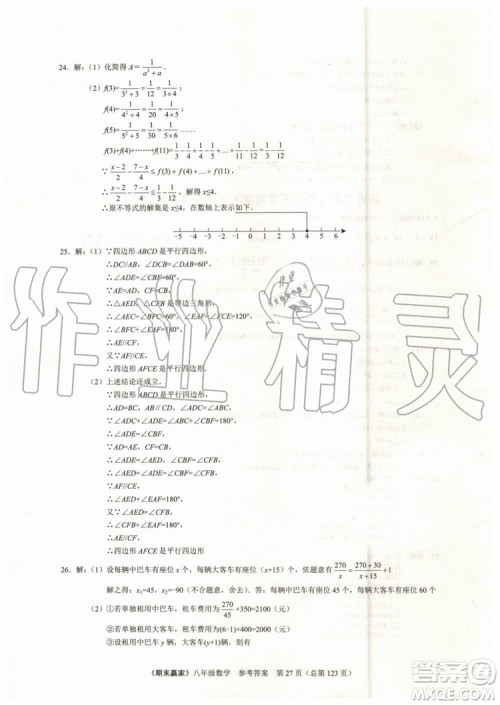 24. 解:(1)化简得 A＝1/(a²＋a).
(2)∵f(3)=1/(3²+3)=1/12=1/(3×4)
f(4)=1/(4²+4)=1/20=1/(4×5)
f(5)=1/(5²+5)=1/30=1/(5×6)……
f(3)+f(4)+……+f(11)=1/3-1/4+1/4-1/5+…+1/11-1/12=1/3-1/12=1/4
∵(x-2)/2-(7-x)/4≤f(3)+f(4)+…+f(11), ∴(x-2)/2-(7-x)/4≤1/4
∴原不等式的解集是 x≤4，在数轴上表示如下:
-5 -4 -3 -2 -1 0 1 2 3 4 5 6
25. 解:(1)∵四边形 ABCD 是平行四边形,
∴DC//AB, ∠DCB=∠DAB=60°,
∴∠ADE=∠CBF=60°,
∵AE=AD, CF=CB,
∴△AED, △CFB 是等边三角形,
∴∠AEC=∠BFC=60°, ∠EAF=∠FCE=120°,
∴∠AEC+∠EAF=180°,
∴AE//CF,
∵AF//CE,
∴四边形 AFCE 是平行四边形.
(2)上述结论还成立.
∵四边形 ABCD 是平行四边形,
∴AD=BC, AB//DC, AB=DC,
∵AD=AE, CF=CB,
∴AE=CF,
∵∠ABC+∠CBF=180°,
∴∠ADC+∠EAF=180°,
∵∠AED=∠ADE,
∴∠AED+∠EAF=180°,
∴AE//CF,
∵AF//CE,
∵∠AED+∠EAF=180°,
∴四边形 AFCE 是平行四边形.
26. 解:(1)设每辆中巴车有座位 x 个，每辆大客车有座位(x+15)个，依题意有270/x=(270+30)/(x+15)+1
解之得: x₁=45, x₂=-90(不合题意，舍去).每辆中巴车有座位 45 个，每辆大客车有座位 60 个
(2)①若单独租用中巴车，租车费用为270/45×350=2100(元)
②若单独租用大客车，租车费用为(6-1)×400=2000(元)
③设租用中巴车 y 辆，大客车(y+1)辆，则有
《期末赢家》八年级数学 参考答案 第 27 页(总第 123 页)
作业精灵